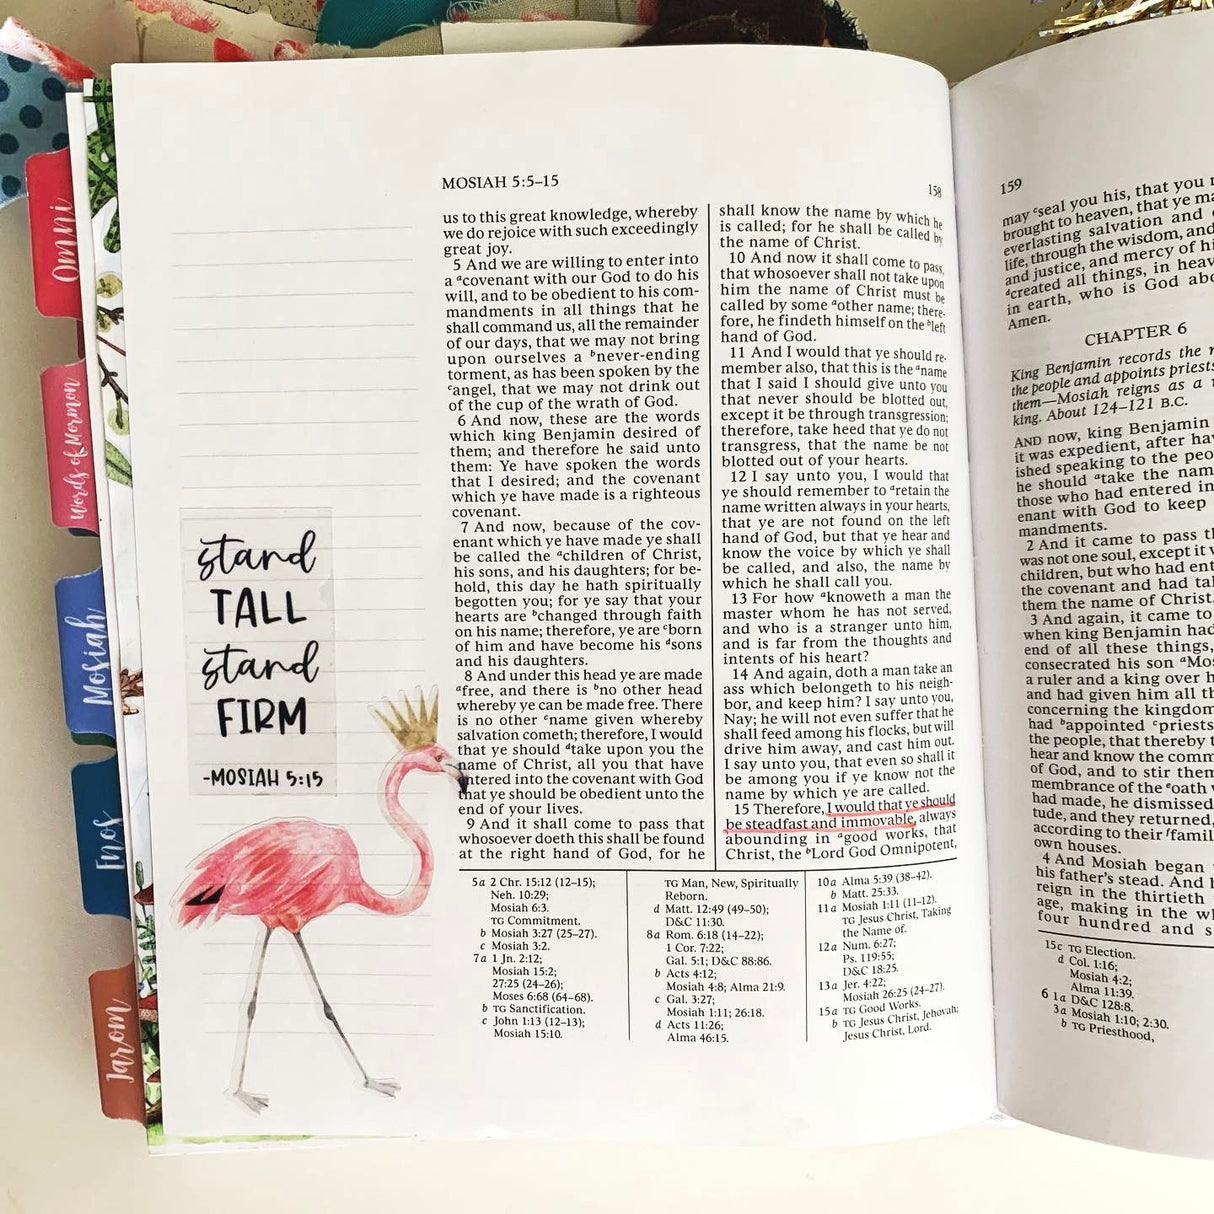 Omni
Words of Mormon
Mosiah
Enos
Jarom
stand
TALL
stand
FIRM
-MOSIAH 5:15
MOSIAH 5:5–15
158
us to this great knowledge, whereby
we do rejoice with such exceedingly
great joy.
5 And we are willing to enter into
a ᵃcovenant with our God to do his
will, and to be obedient to his com-
mandments in all things that he
shall command us, all the remainder
of our days, that we may not bring
upon ourselves a ᵇnever-ending
torment, as has been spoken by the
ᶜangel, that we may not drink out
of the cup of the wrath of God.
6 And now, these are the words
which king Benjamin desired of
them; and therefore he said unto
them: Ye have spoken the words
that I desired; and the covenant
which ye have made is a righteous
covenant.
7 And now, because of the cov-
enant which ye have made ye shall
be called the ᵃchildren of Christ,
his sons, and his daughters; for be-
hold, this day he hath spiritually
begotten you; for ye say that your
hearts are ᵇchanged through faith
on his name; therefore, ye are ᶜborn
of him and have become his ᵈsons
and his daughters.
8 And under this head ye are made
ᵃfree, and there is ᵇno other head
whereby ye can be made free. There
is no other ᶜname given whereby
salvation cometh; therefore, I would
that ye should ᵈtake upon you the
name of Christ, all you that have
entered into the covenant with God
that ye should be obedient unto the
end of your lives.
9 And it shall come to pass that
whosoever doeth this shall be found
at the right hand of God, for he
shall know the name by which he
is called; for he shall be called by
the name of Christ.
10 And now it shall come to pass,
that whosoever shall not take upon
him the name of Christ must be
called by some ᵃother name; there-
fore, he findeth himself on the ᵇleft
hand of God.
11 And I would that ye should re-
member also, that this is the ᵃname
that I said I should give unto you
that never should be blotted out,
except it be through transgression;
therefore, take heed that ye do not
transgress, that the name be not
blotted out of your hearts.
12 I say unto you, I would that
ye should remember to ᵃretain the
name written always in your hearts,
that ye are not found on the left
hand of God, but that ye hear and
know the voice by which ye shall
be called, and also, the name by
which he shall call you.
13 For how ᵃknoweth a man the
master whom he has not served,
and who is a stranger unto him,
and is far from the thoughts and
intents of his heart?
14 And again, doth a man take an
ass which belongeth to his neigh-
bor, and keep him? I say unto you,
Nay; he will not even suffer that he
shall feed among his flocks, but will
drive him away, and cast him out.
I say unto you, that even so shall it
be among you if ye know not the
name by which ye are called.
15 Therefore, I would that ye should
be steadfast and immovable, always
abounding in ᵃgood works, that
Christ, the ᵇLord God Omnipotent,
5a 2 Chr. 15:12 (12–15);
Neh. 10:29;
Mosiah 6:3.
TG Commitment.
b Mosiah 3:27 (25–27).
c Mosiah 3:2.
7a 1 Jn. 2:12;
Mosiah 15:2;
27:25 (24–26);
Moses 6:68 (64–68).
b TG Sanctification.
c John 1:13 (12–13);
Mosiah 15:10.
TG Man, New, Spiritually
Reborn.
d Matt. 12:49 (49–50);
D&C 11:30.
8a Rom. 6:18 (14–22);
1 Cor. 7:22;
Gal. 5:1; D&C 88:86.
b Acts 4:12;
Mosiah 4:8; Alma 21:9.
c Gal. 3:27;
Mosiah 1:11; 26:18.
d Acts 11:26;
Alma 46:15.
10a Alma 5:39 (38–42).
b Matt. 25:33.
11a Mosiah 1:11 (11–12).
TG Jesus Christ, Taking
the Name of.
12a Num. 6:27;
Ps. 119:55;
D&C 18:25.
13a Jer. 4:22;
Mosiah 26:25 (24–27).
15a TG Good Works.
b TG Jesus Christ, Jehovah;
Jesus Christ, Lord.
159
may ᶜseal you his, that you
brought to heaven, that ye
everlasting salvation and
life, through the wisdom, and
and justice, and mercy of
ᵈcreated all things, in
in earth, who is God
Amen.
CHAPTER 6
King Benjamin records the
the people and appoints
them—Mosiah reigns as a
king. About 124–121 B.C.
AND now, king Benjamin
it was expedient, after
ished speaking to the
he should ᵃtake the
those who had entered
enant with God to keep
mandments.
2 And it came to pass
was not one soul, except it
children, but who had
the covenant and had
them the name of Christ.
3 And again, it came to
when king Benjamin had
end of all these things,
consecrated his son
a ruler and a king over
and had given him all
concerning the kingdom
had ᵇappointed ᶜpriests
the people, that thereby
hear and know the
of God, and to stir them
membrance of the ᵉoath
had made, he dismissed
tude, and they returned,
according to their
own houses.
4 And Mosiah began
his father's stead. And
reign in the thirtieth
age, making in the
four hundred and
15c TG Election.
d Col. 1:16;
Mosiah 4:2;
Alma 11:39.
6 1a D&C 128:8.
3a Mosiah 1:10; 2:30.
b TG Priesthood,